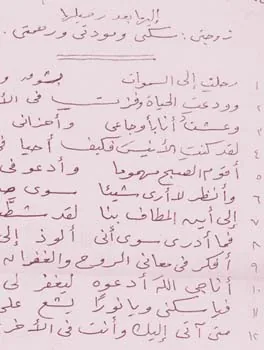 إليها بعد رحيلها
زوجتي: سكني ومودتي ورحمتي.
١ رحلت إلى السموات
٢ وودعت الحياة وفزت في
٣ وعشت أنا بأوجاعي وأحزاني
٤ لقد كنت الأنيس فكيف أحيا
٥ أقوم الصبح مهموما وأدعو في
٦ وأنظر لا أرى شيئا سوى
٧ إلى أين المطاف بنا لقد
٨ فما أدرى سوى أني ألوذ إلى
٩ أفكر في معاني الروح والغفران
١٠ أناجي الله أدعوه ليغفر لي
١١ فيا سكني ويا نورا يشع على
١٢ متى آتي إليك وأنت في